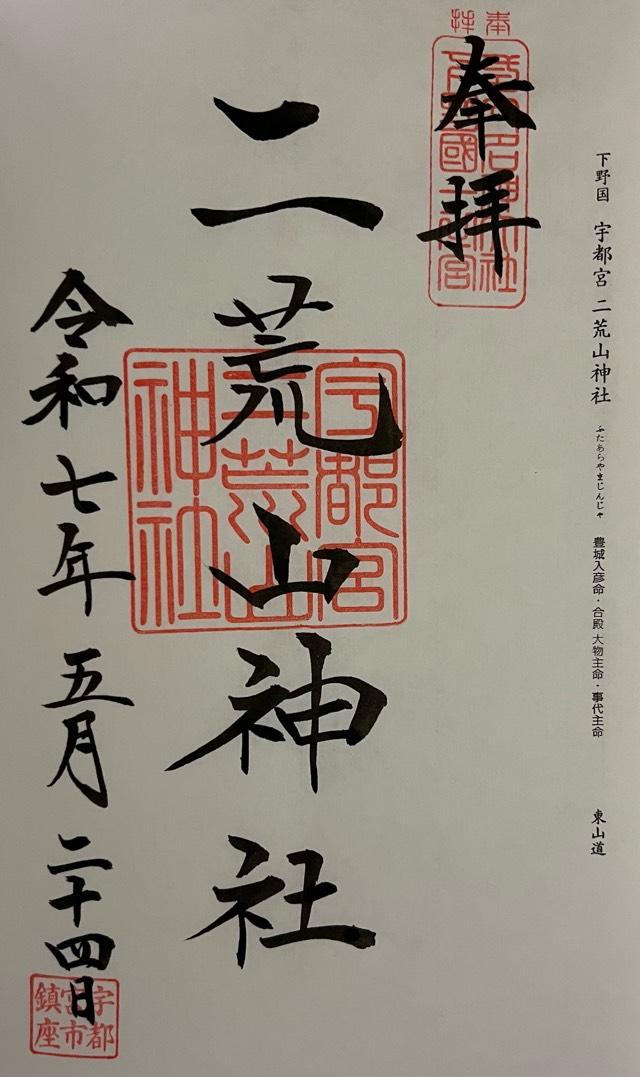 下野国 宇都宮 二荒山神社 ふたあらやまじんじゃ 豊城入彦命・合殿 大物主命・事代主命 東山道
奉拝
奉拝
二荒山神社
宇都宮
二荒山
神社
令和七年五月二十四日
宇都
宮市
鎮座